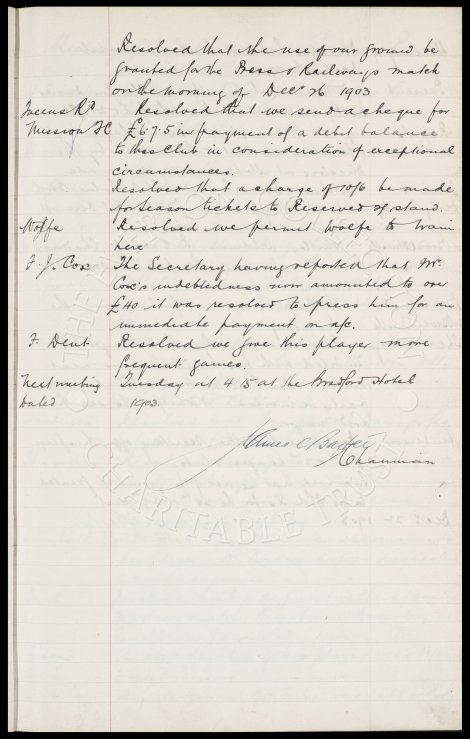 Resolved that the use of our ground be
granted for the Press & Railways match
on the morning of Decr 26 1903
Queens Rd Resolved that we send a cheque for
Mission FC £6.7.5 in payment of a debit balance
to this Club in consideration of exceptional
circumstances.
Resolved that a charge of 10/6 be made
for Season tickets to Reserved of stand.
Wolfe Resolved we permit Wolfe to train
here
F. J. Cox The Secretary having reported that Mr
Cox's indebtedness now amounted to over
£40 it was resolved to press him for an
immediate payment on a/c.
F. Dent Resolved we give this player more
frequent games.
Next meeting Tuesday at 4.15 at the Bradford Hotel
Dated 1903.
James C Baxter
Chairman
CHARITABLE TRUST